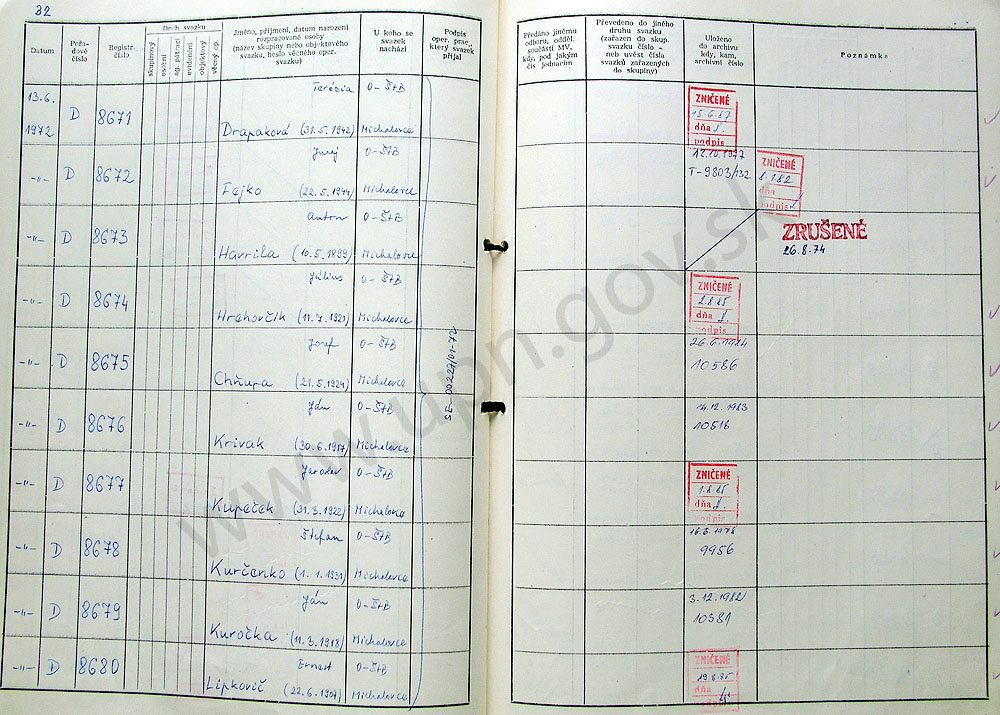 32
Datum
Pořadové číslo
Registr. číslo
Druh svazku
skupinový
osobní
sg. pátrací
evidenční
objektový
věcný op.
Jméno, příjmení, datum narození
rozpracované osoby
(název skupiny nebo objektového
svazku, heslo věcného oper.
svazku)
U koho se
svazek
nachází
Podpis
oper. prac.,
který svazek
přijal
Předáno jinému
odboru, odděl.
součásti MV,
kdy, pod jakým
čís jednacím
Převedeno do jiného
druhu svazku
(zařazen do skup.
svazku číslo -
neb uvést čísla
svazků zařazených
do skupiny)
Uloženo
do archivu
kdy, kam,
archivní číslo
Poznámka
13.6. 1972 D 8671 Terézia Drapaková (31.5.1942) O-ŠtB Michalovce
ZNIČENÉ
dňa
podpis
-"- D 8672 Juraj Fejko (22.5.1944) O-ŠtB Michalovce
12.10.1977
T-9803/132
ZNIČENÉ
8.1.82
dňa
podpis
-"- D 8673 Anton Havrila (10.5.1899) O-ŠtB Michalovce
ZRUŠENÉ
26.8.74
-"- D 8674 Július Hrehovčík (11.7.1921) O-ŠtB Michalovce
ZNIČENÉ
2.8.85
dňa
podpis
-"- D 8675 Jozef Chňupa (21.5.1924) O-ŠtB Michalovce
26.6.1984
10586
SE-00227/01-72
-"- D 8676 Ján Krivak (30.6.1917) O-ŠtB Michalovce
14.12.1983
10516
-"- D 8677 Jaroslav Kupeček (31.3.1922) O-ŠtB Michalovce
ZNIČENÉ
1.8.85
dňa
podpis
-"- D 8678 Štefan Kurčenko (1.1.1931) O-ŠtB Michalovce
9956
-"- D 8679 Ján Kuročka (11.3.1918) O-ŠtB Michalovce
3.12.1982
10381
-"- D 8680 Ernest Lipkovič (22.6.1907) O-ŠtB Michalovce
ZNIČENÉ
19.8.85
dňa
podpis
www.upn.gov.sk